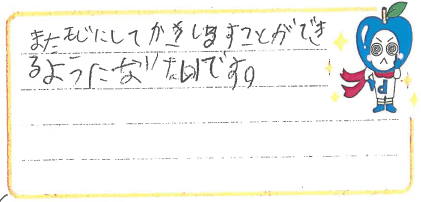 またもじにしてかきしるすことができ
るようになりたいです。